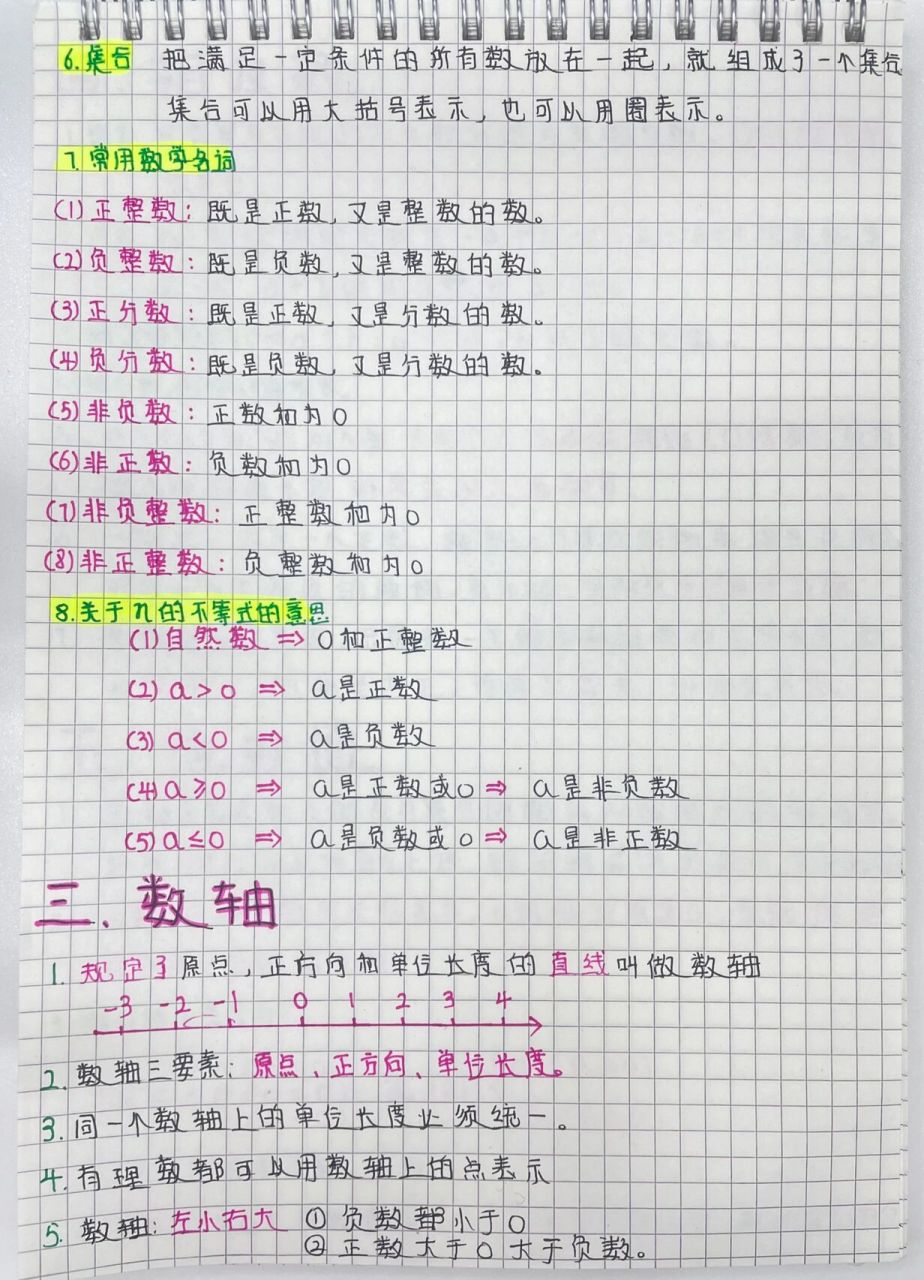 6.集合 把满足一定条件的所有数放在一起，就组成了一个集合
集合可以用大括号表示，也可以用圈表示。
7.常用数学名词
(1)正整数：既是正数，又是整数的数。
(2)负整数：既是负数，又是整数的数。
(3)正分数：既是正数，又是分数的数。
(4)负分数：既是负数，又是分数的数。
(5)非负数：正数和为0
(6)非正数：负数和为0
(7)非负整数：正整数和为0
(8)非正整数：负整数和为0
8.关于n的不等式的意思
(1)自然数⇒0和正整数
(2)a>0 ⇒ a是正数
(3)a<0 ⇒ a是负数
(4)a≥0 ⇒ a是正数或0⇒ a是非负数
(5)a≤0 ⇒ a是负数或0⇒ a是非正数
三.数轴
1.规定了原点，正方向和单位长度的直线叫做数轴
-3 -2 -1 0 1 2 3 4
2.数轴三要素：原点、正方向、单位长度。
3.同一个数轴上的单位长度必须统一。
4.有理数都可以用数轴上的点表示
5.数轴：左小右大 ①负数都小于0
②正数大于0大于负数。